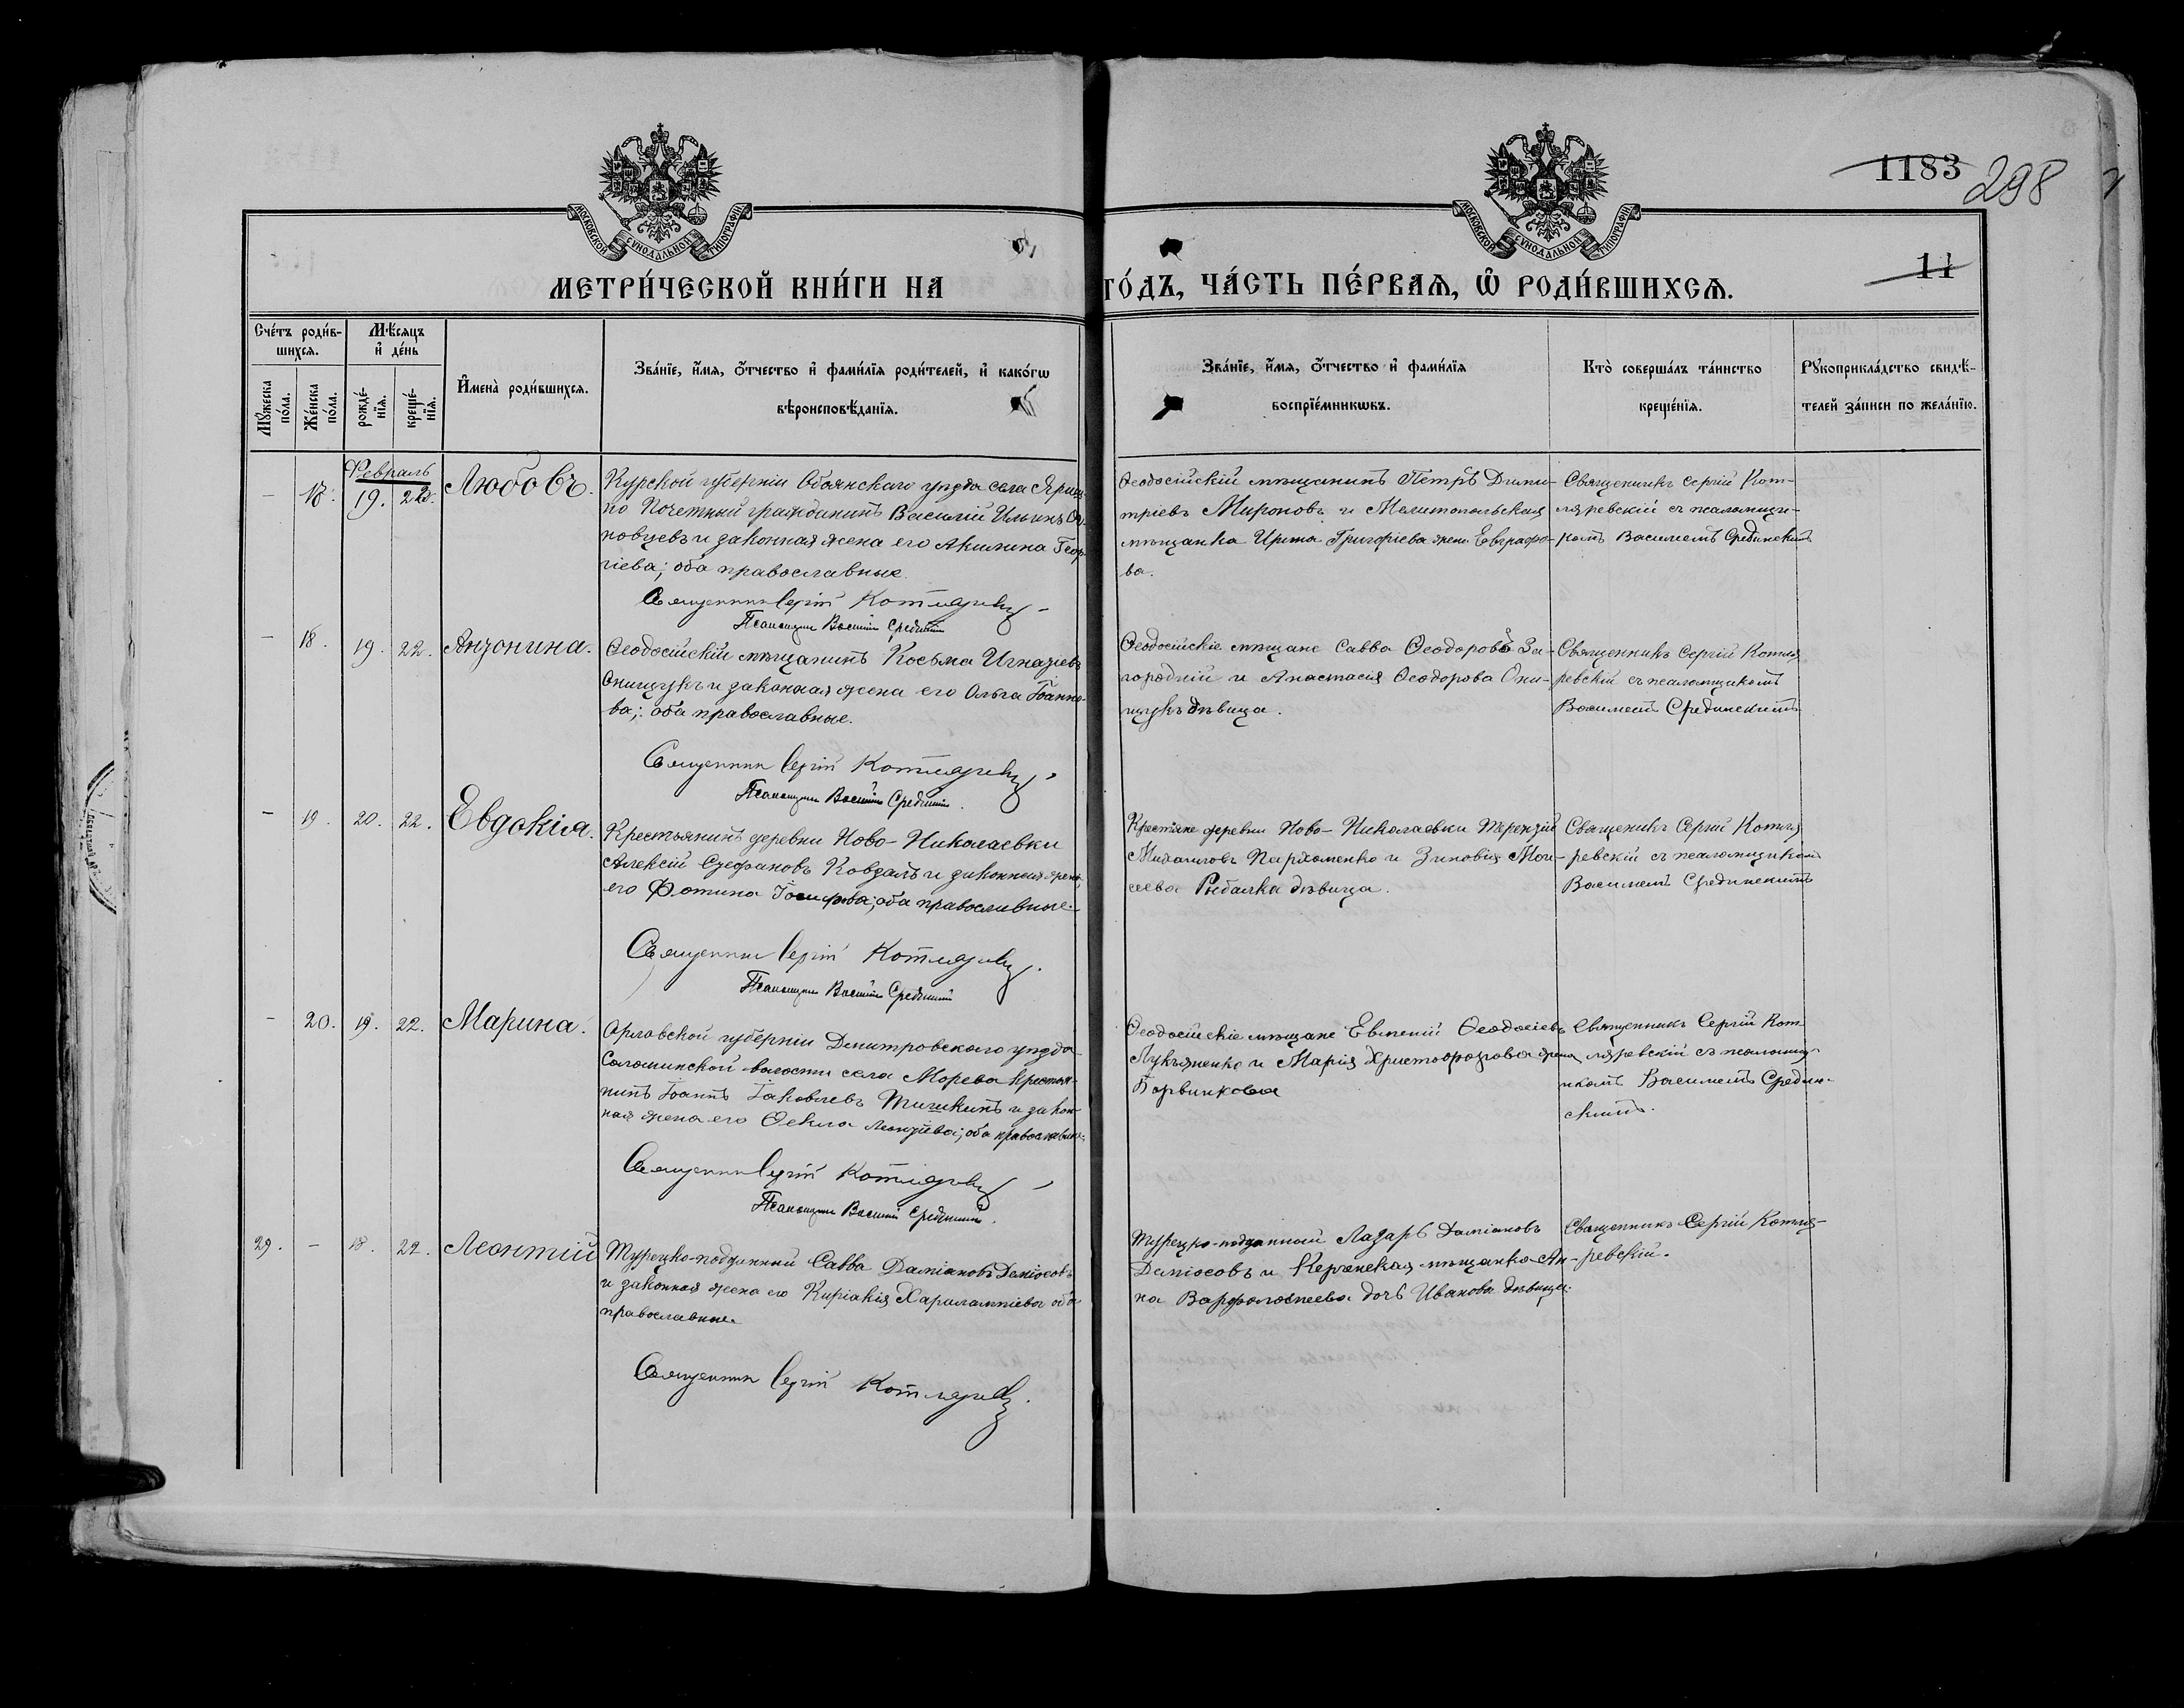 1183
298
МОСКОВСКОЙ СѴНОДАЛЬНОЙ ТИПОГРАФІИ
МОСКОВСКОЙ СѴНОДАЛЬНОЙ ТИПОГРАФІИ
11
МЕТРИ́ЧЕСКОЙ КНИ́ГИ НА
ГО́ДЪ, ЧА́СТЬ ПЕ́РВАѦ, Ѡ҆ РОДИ́ВШИХСѦ.
Сче́тъ роди́в-
шихсѧ.
Мѣ́сѧцъ
и҆ де́нь
Мꙋ́жеска по́ла.
Же́нска по́ла.
рожде́-
нїѧ.
креще́-
нїѧ.
И҆мена̀ роди́вшихсѧ.
Зва́нїе, и҆́мѧ, ѻ҆́тчество и҆ фами́лїѧ роди́телей, и҆ како́гѡ
вѣроисповѣ́данїѧ.
Зва́нїе, и҆́мѧ, ѻ҆́тчество и҆ фами́лїѧ
воспрїе́мникѡвъ.
Кто̀ соверша́лъ та́инство
креще́нїѧ.
Рꙋкоприкла́дство свидѣ́-
телей за́писи по жела́нїю.
Февраль
– 17. 19. 22. Любовь.
Курской губерніи Обоянскаго уѣзда села
Почетный гражданинъ Василій Ильинъ
и законная жена его Акилина Геор-
гіева; оба православные.
Священникъ Сергій Котляревскій
Псаломщикъ Василій Срединскій
Ѳеодосійскій мѣщанинъ Петръ Дими-
тріевъ Мироновъ и Мелитопольская
мѣщанка Ирина Григоріева жена Евграфо-
ва.
Священникъ Сергій Кот-
ляревскій съ псаломщи-
комъ Василіемъ Срединскимъ
– 18. 19. 22. Антонина.
Ѳеодосійскій мѣщанинъ Косьма Игнатіевъ
Онищукъ и законная жена его Ольга Іоанно-
ва; оба православные.
Священникъ Сергій Котляревскій
Псаломщикъ Василій Срединскій.
Ѳеодосійскіе мѣщане Савва Ѳеодоровъ За-
городній и Анастасія Ѳеодорова Они-
щукъ дѣвица.
Священникъ Сергій Котля
ревскій съ псаломщикомъ
Василіемъ Срединскимъ
– 19. 20. 22. Евдокія.
Крестьянинъ деревни Ново-Николаевки
Алексій Стефановъ Ковталъ и законная жена
его Фотина Іосифова; оба православные.
Священникъ Сергій Котляревскій.
Псаломщикъ Василій Срединскій
Крестьяне деревни Ново-Николаевки Терентій
Михаиловъ Пархоменко и Зиновія Мои-
сеева Рыбалка дѣвица.
Священникъ Сергій Котля
ревскій съ псаломщикомъ
Василіемъ Срединскимъ
– 20. 19. 22. Марина.
Орловской губерніи Дмитровскаго уѣзда
Соломинской волости села Морева крестья-
нинъ Іоаннъ Іаковлевъ Тишкинъ и закон-
ная жена его Ѳекла Леонтіева; оба православные.
Священникъ Сергій Котляревскій
Псаломщикъ Василій Срединскій.
Ѳеодосійскіе мѣщане Евгеній Ѳеодосіевъ
Лукьяненко и Марія Христофорова жена
Борвинкова
Священникъ Сергій Кот
ляревскій съ псаломщи-
комъ Василіемъ Средин-
скимъ.
29. – 18. 22. Леонтій
Турецко-подданный Савва Даміановъ Даміосовъ
и законная жена его Киріакія Харалампіева оба
православные.
Священникъ Сергій Котляревскій.
Турецко-подданный Лазарь Даміановъ
Даміосовъ и Керченская мѣщанка Ан-
на Варфоломеева дочь Иванова дѣвица.
Священникъ Сергій Котля-
ревскій.